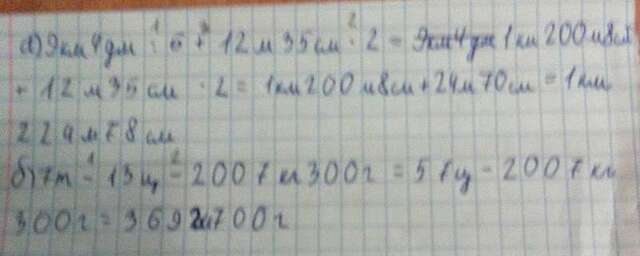 а) 9км 4дм : 5 + 12м 35см · 2 = 9км 4дм 1км 200м 8см
+ 12м 35см · 2 = 1км 200м 8см + 24м 70см = 1км
224м 78см
б) 7т - 13ц - 2007кг 300г = 57ц - 2007кг
300г = 3692кг 700г